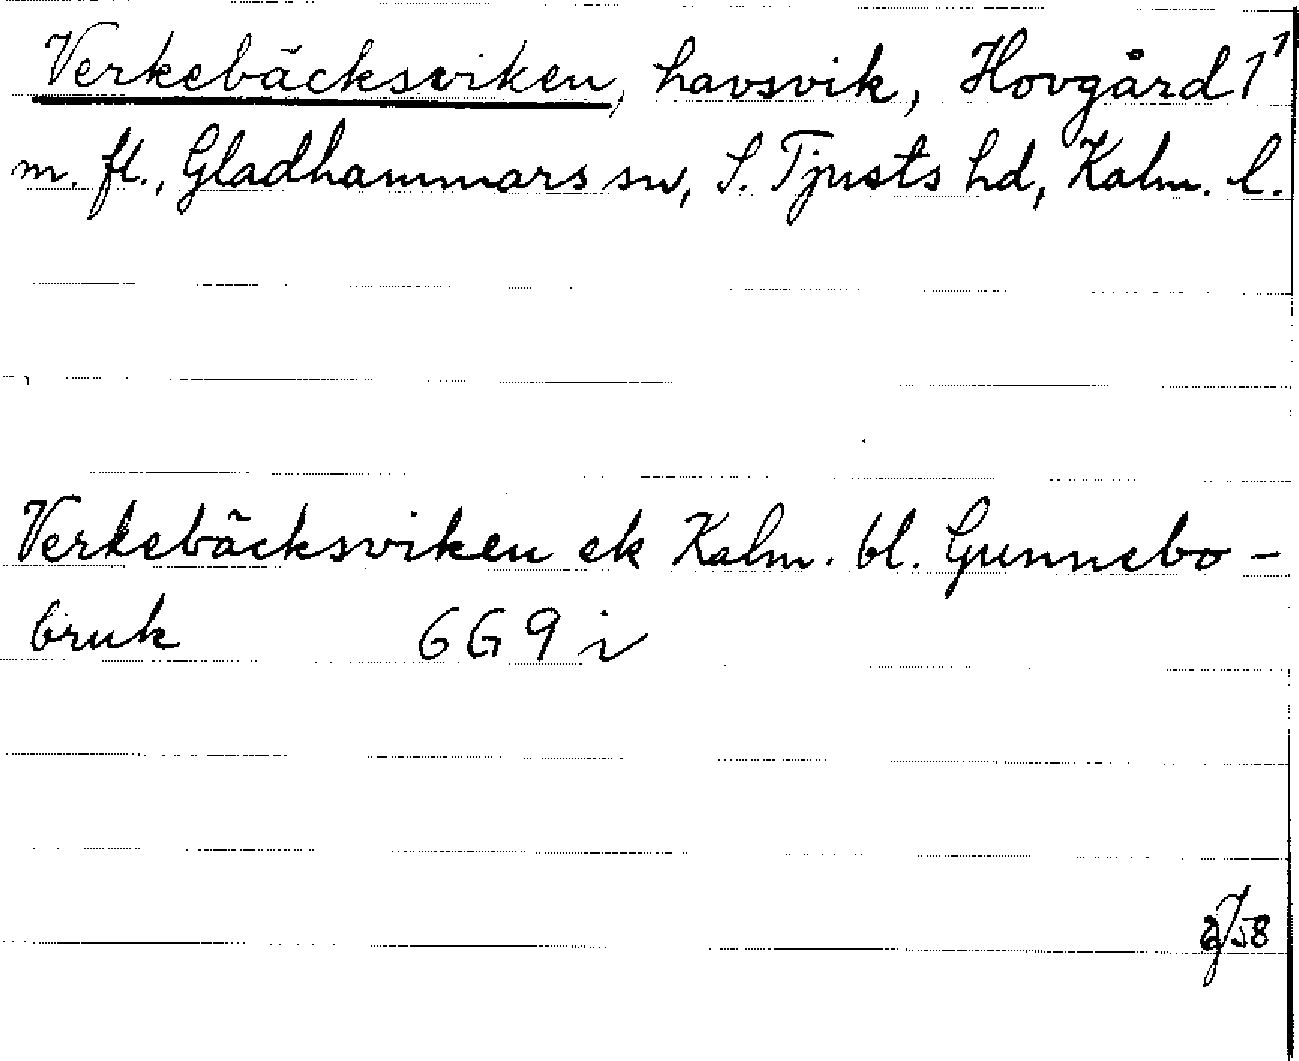 Verkebäcksviken, havsvik, Hovgård 1¹
m. fl., Gladhammars sn, S. Tjusts hd, Kalm. l.
Verkebäcksviken ek Kalm. bl. Gunnebo-
bruk 6G 9 i